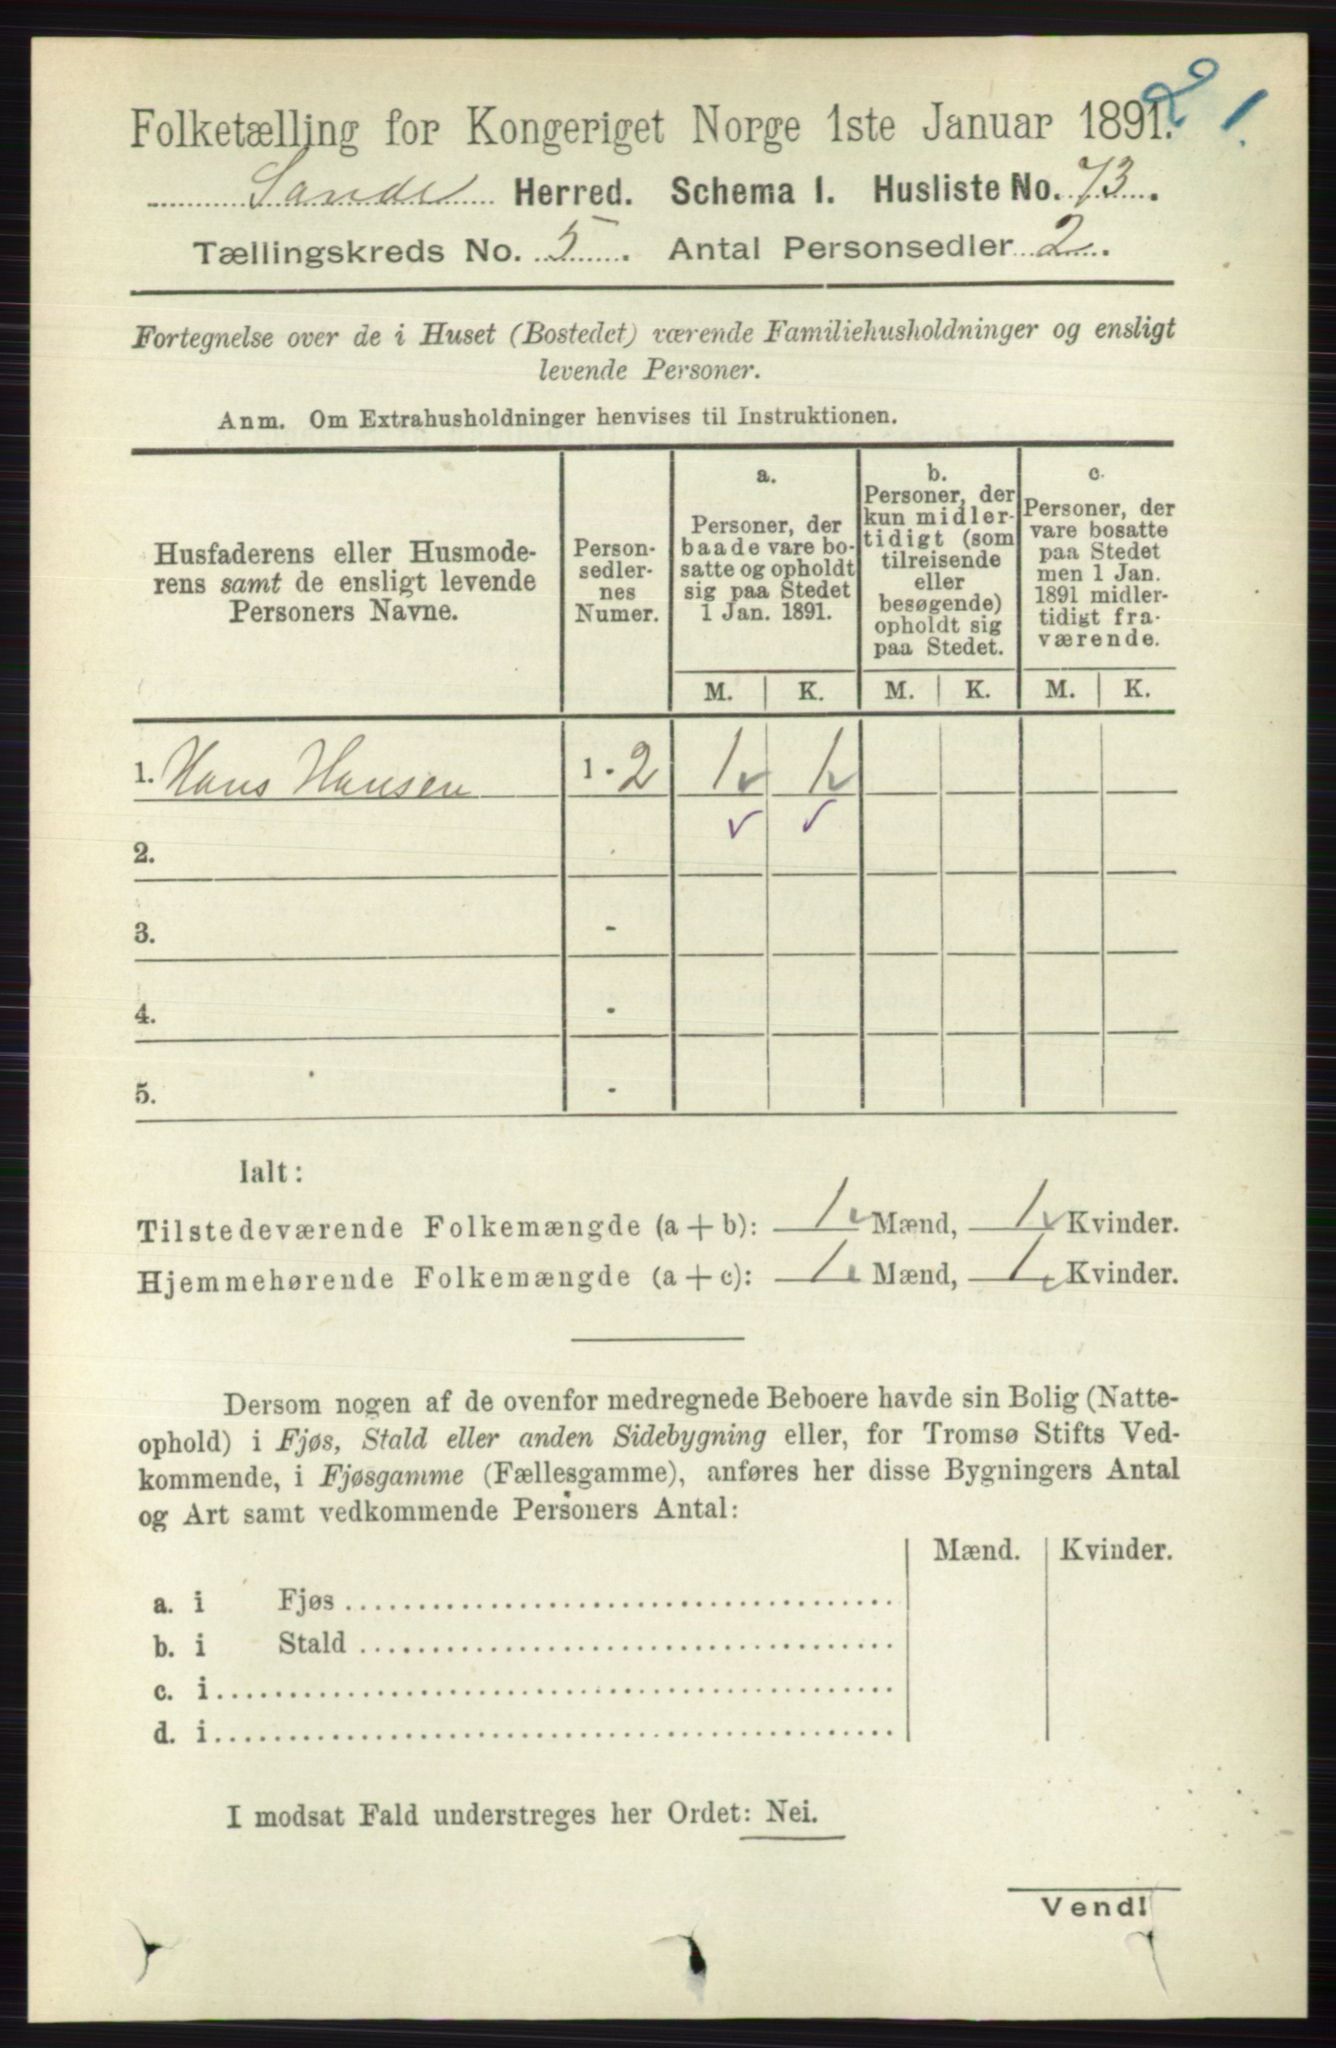 2 1.
Folketælling for Kongeriget Norge 1ste Januar 1891.
Sande Herred. Schema 1. Husliste No. 73.
Tællingskreds No. 5. Antal Personsedler 2.
Fortegnelse over de i Huset (Bostedet) værende Familiehusholdninger og ensligt
levende Personer.
Anm. Om Extrahusholdninger henvises til Instruktionen.
Husfaderens eller Husmode-
rens samt de ensligt levende
Personers Navne.
Person-
sedler-
nes
Numer.
a.
Personer, der
baade vare bo-
satte og opholdt
sig paa Stedet
1 Jan. 1891.
b.
Personer, der
kun midler-
tidigt (som
tilreisende
eller
besøgende)
opholdt sig
paa Stedet.
c.
Personer, der
vare bosatte
paa Stedet
men 1 Jan.
1891 midler-
tidigt fra-
værende.
M. K. M. K. M. K.
1. Hans Hansen 1 - 2 1 ✓ 1 ✓
✓ ✓
2.
3. -
4. -
5. -
Ialt:
Tilstedeværende Folkemængde (a + b): 1 ✓ Mænd, 1 ✓ Kvinder.
Hjemmehørende Folkemængde (a + c): 1 ✓ Mænd, 1 ✓ Kvinder.
Dersom nogen af de ovenfor medregnede Beboere havde sin Bolig (Natte-
ophold) i Fjøs, Stald eller anden Sidebygning eller, for Tromsø Stifts Ved-
kommende, i Fjøsgamme (Fællesgamme), anføres her disse Bygningers Antal
og Art samt vedkommende Personers Antal:
Mænd. Kvinder.
a. i Fjøs
b. i Stald
c. i
d. i
I modsat Fald understreges her Ordet: Nei.
Vend!